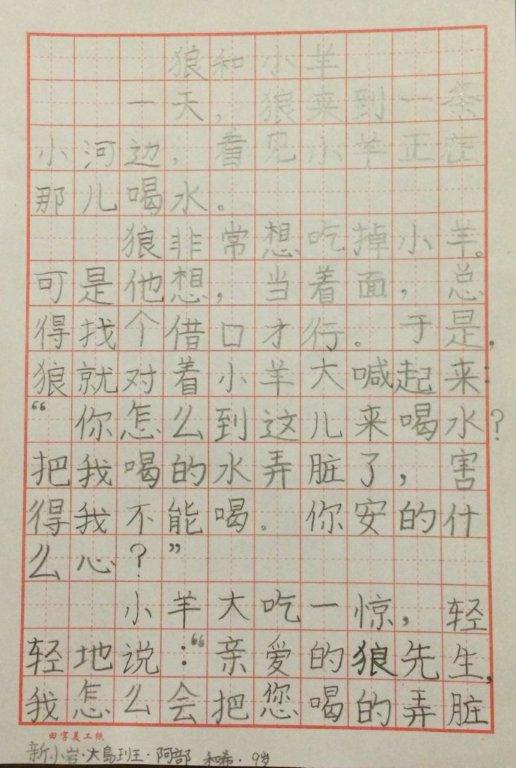 狼和小羊
一天，狼来到一条
小河边，看见小羊正在
那儿喝水。
狼非常想吃掉小羊。
可是他想，当着面，总
得找个借口才行。于是，
狼就对着小羊大喊起来：
“你怎么到这儿来喝水？
把我喝的水弄脏了，害
得我不能喝。你安的什
么心？”
小羊大吃一惊，轻
轻地说：“亲爱的狼先生，
我怎么会把您喝的弄脏
田字美工纸
新小岩·大島班·阿部 和希·9岁